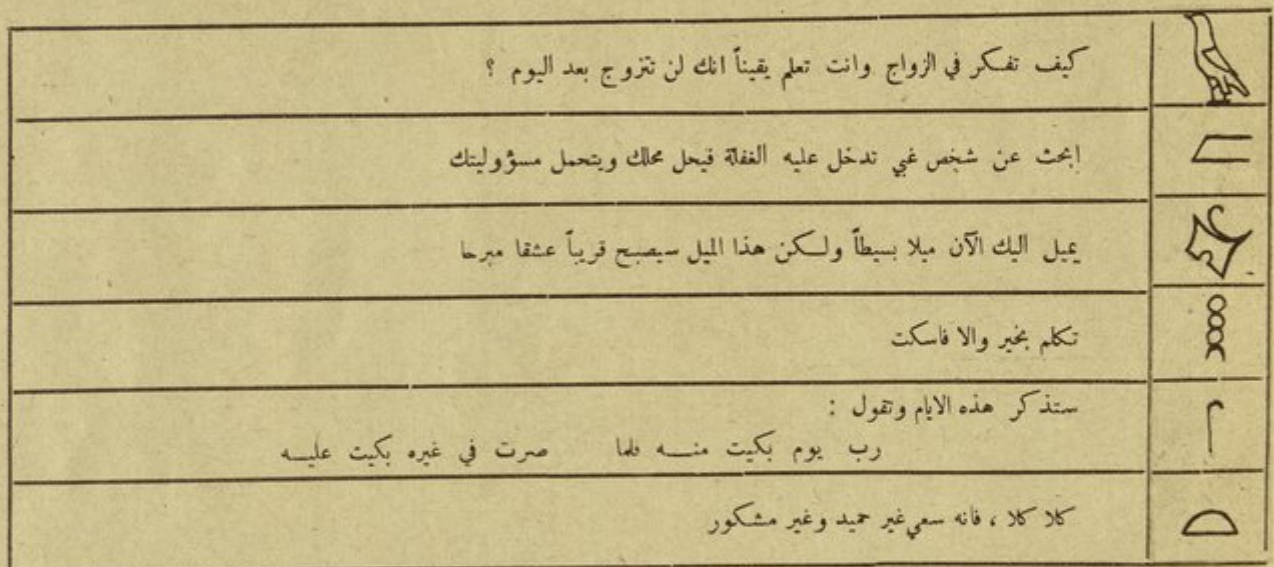 كيف تفكر في الزواج وانت تعلم يقيناً انك لن تتزوج بعد اليوم ؟
ابحث عن شخص غبي تدخل عليه الغفلة فيحل محلك ويتحمل مسؤوليتك
يميل اليك الآن ميلا بسيطاً ولكن هذا الميل سيصبح قريباً عشقا مبرحا
تكلم بخير والا فاسكت
ستذكر هذه الايام وتقول :
رب يوم بكيت منه فلما صرت في غيره بكيت عليه
كلا كلا ، فانه سعي غير حميد وغير مشكور